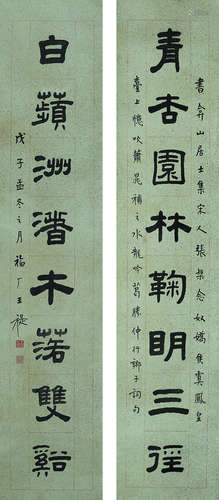 青杏園林鞠眀三徑
書弇山居士集宋人張榘念奴嬌侯寘鳳皇
臺上憶吹簫晁補之水龍吟葛勝仲行鄉子詞句
白蘋洲渚木落雙谿
戊子孟冬之月福厂王禔